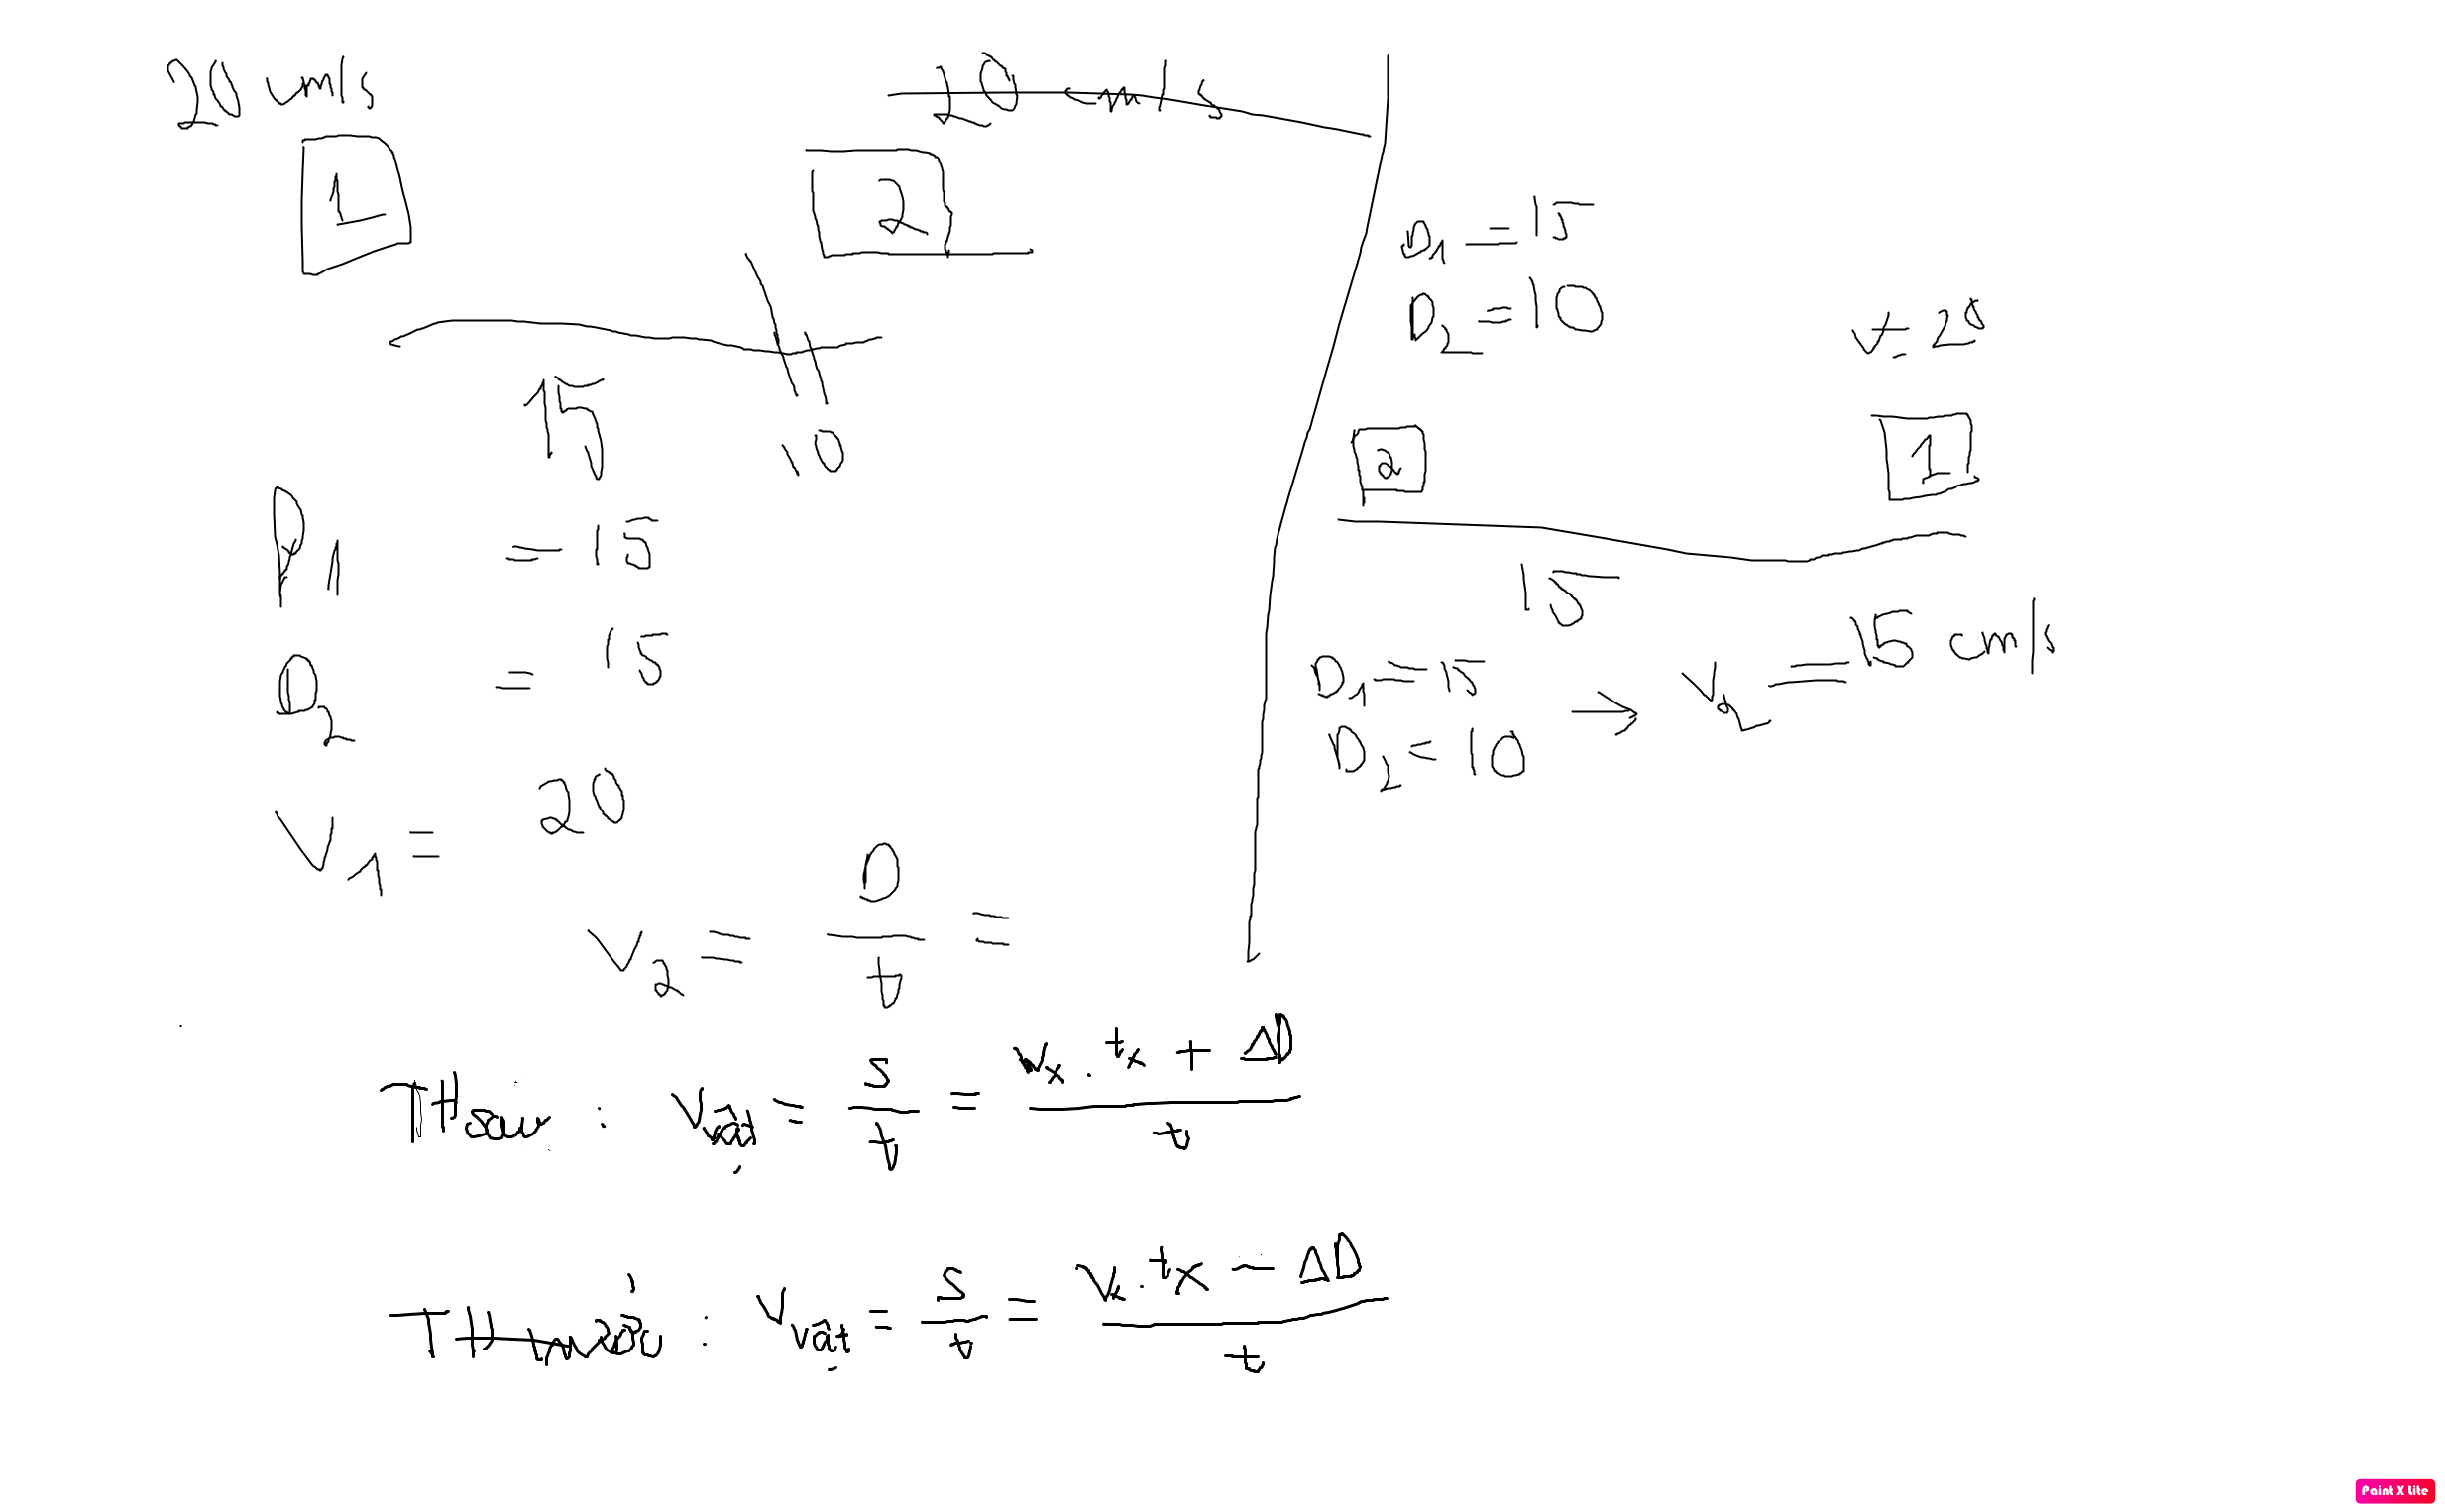 20 cm/s
20 cm/s
1
2
15
10
D1 = 15
D2 = 15
V1 = 20
V2 = D/t =
D1 = 15
D2 = 10
V = 20
2
1
15
D1 = 15
D2 = 10
→ V2 = 15 cm/s
TH sau : Vvật = s/t = (vx . tx + ΔD)/t
TH : Vvật = s/t = (vx . tx − ΔD)/t
Paint X Lite